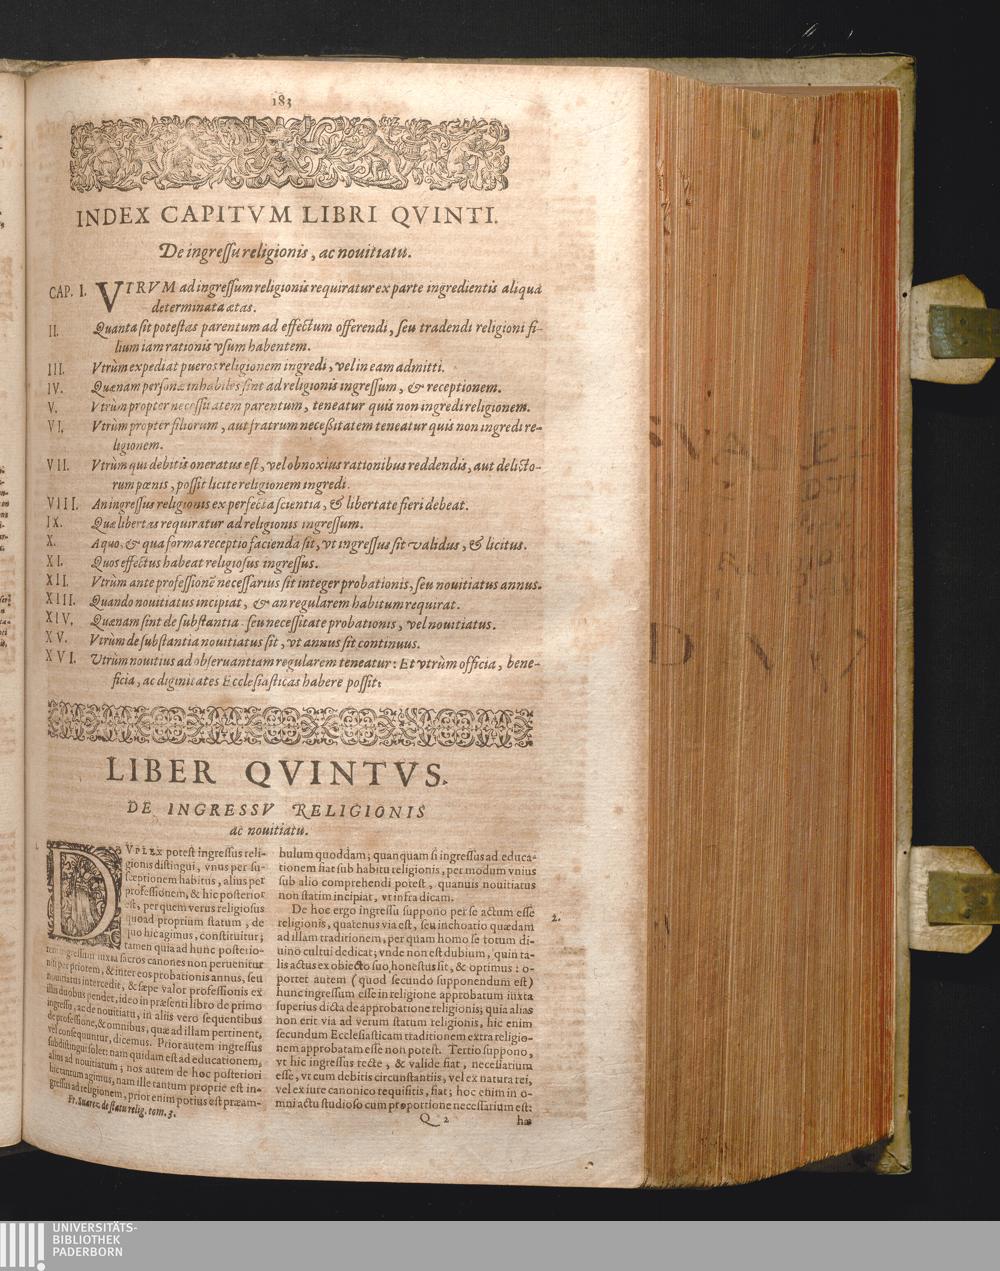 183
INDEX CAPITVM LIBRI QVINTI.
De ingressu religionis, ac nouitiatu.
CAP. I. VTRVM ad ingressum religionis requiratur ex parte ingredientis aliqua
determinata ætas.
II. Quanta sit potestas parentum ad effectum offerendi, seu tradendi religioni fi-
lium iam rationis vsum habentem.
III. Vtrùm expediat pueros religionem ingredi, vel in eam admitti.
IV. Quænam personæ inhabiles sint ad religionis ingressum, & receptionem.
V. Vtrùm propter necessitatem parentum, teneatur quis non ingredi religionem.
VI. Vtrùm propter filiorum, aut fratrum necessitatem teneatur quis non ingredi re-
ligionem.
VII. Vtrùm qui debitis oneratus est, vel obnoxius rationibus reddendis, aut delicto-
rum pœnis, possit licite religionem ingredi.
VIII. An ingressus religionis ex perfecta scientia, & libertate fieri debeat.
IX. Quæ libertas requiratur ad religionis ingressum.
X. A quo, & qua forma receptio facienda sit, vt ingressus sit validus, & licitus.
XI. Quos effectus habeat religiosus ingressus.
XII. Vtrùm ante professionē necessarius sit integer probationis, seu nouitiatus annus.
XIII. Quando nouitiatus incipiat, & an regularem habitum requirat.
XIV. Quænam sint de substantia seu necessitate probationis, vel nouitiatus.
XV. Vtrùm de substantia nouitiatus sit, vt annus sit continuus.
XVI. Vtrùm nouitius ad obseruantiam regularem teneatur: Et vtrùm officia, bene-
ficia, ac diginitates Ecclesiasticas habere possit:
LIBER QVINTVS.
DE INGRESSV RELIGIONIS
ac nouitiatu.
DVPLEX potest ingressus reli-
gionis distingui, vnus per su-
sceptionem habitus, alius per
professionem, & hic posterior
est, per quem verus religiosus
quoad proprium statum, de
quo hic agimus, constituitur;
tamen quia ad hunc posterio-
rem ingressum iuxta sacros canones non peruenitur
nisi per priorem, & inter eos probationis annus, seu
nouitiatus intercedit, & sæpe valor professionis ex
illis duobus pendet, ideo in præsenti libro de primo
ingressu, ac de nouitiatu, in aliis vero sequentibus
de professione, & omnibus, quæ ad illam pertinent,
vel consequuntur, dicemus. Prior autem ingressus
subdistingui solet: nam quidam est ad educationem,
alius ad nouitiatum; nos autem de hoc posteriori
hic tantum agimus, nam ille tantum proprie est in-
gressus ad religionem, prior enim potius est præam-
Fr. Suarez de statu relig. tom. 3.
bulum quoddam; quanquam si ingressus ad educa-
tionem fiat sub habitu religionis, per modum vnius
sub alio comprehendi potest, quanuis nouitiatus
non statim incipiat, vt infra dicam.
De hoc ergo ingressu suppono per se actum esse
2.
religionis, quatenus via est, seu inchoatio quædam
ad illam traditionem, per quam homo se totum di-
uino cultui dedicat; vnde non est dubium, quin ta-
lis actus ex obiecto suo honestus sit, & optimus: o-
portet autem (quod secundo supponendum est)
hunc ingressum esse in religione approbatum iuxta
superius dicta de approbatione religionis; quia alias
non erit via ad verum statum religionis, hic enim
secundum Ecclesiasticam traditionem extra religio-
nem approbatam esse non potest. Tertio suppono,
vt hic ingressus recte, & valide fiat, necessarium
esse, vt cum debitis circunstantiis, vel ex natura rei,
vel ex iure canonico requisitis, fiat; hoc enim in o-
mni actu studioso cum proportione necessarium est:
Q 2
hæ
UNIVERSITÄTS-
BIBLIOTHEK
PADERBORN